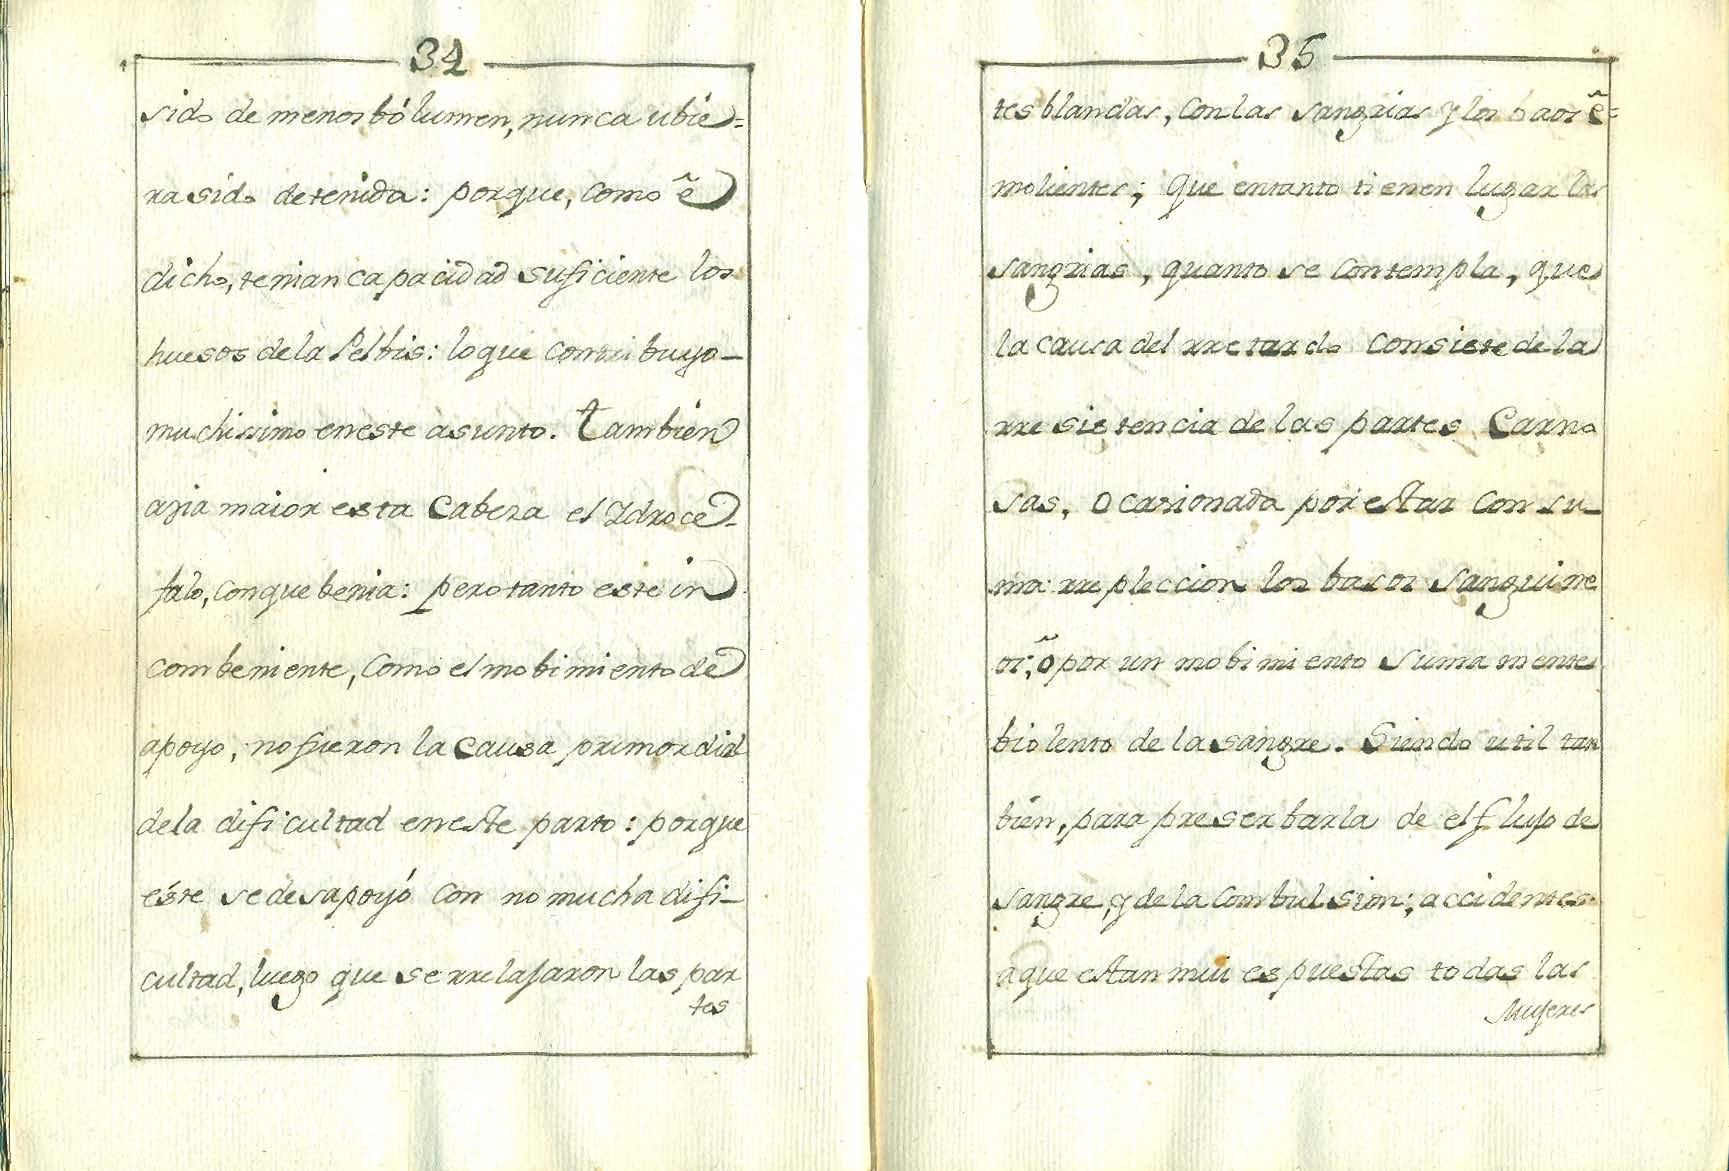 34
sido de menos bólumen, nunca ubie=
ra sido detenida: porque, como ê
dicho, tenian capacidad suficiente los
huesos de la Pelbis: lo que contribuyo-
muchissimo en este asunto. También
azia maior esta Cabeza el Idroce-
falo, con que benia: pero tanto este in
combeniente, como el mobimiento de
apoyo, no fueron la Causa primordial
de la dificultad en este parto: porque
éste se desapoyó con no mucha difi-
cultad, luego que se rrelajaron las par
tes
35
tes blandas, con las sangrias y los baos ê=
molientes; Que entanto tienen lugar las
sangrias, quanto se contempla, que
la causa del rretardo consiste de la
rresistencia de las partes Carno
sas, ocasionada por estar con su-
ma rreplección los basos sanguine
os; õ por un mobimiento sumamente
biolento de la sangre. Siendo util tan
bién, para preserbarla de el flujo de
sangre, y de la combulsion; accidentes
a que estan mui espuestas todas las
Mujeres